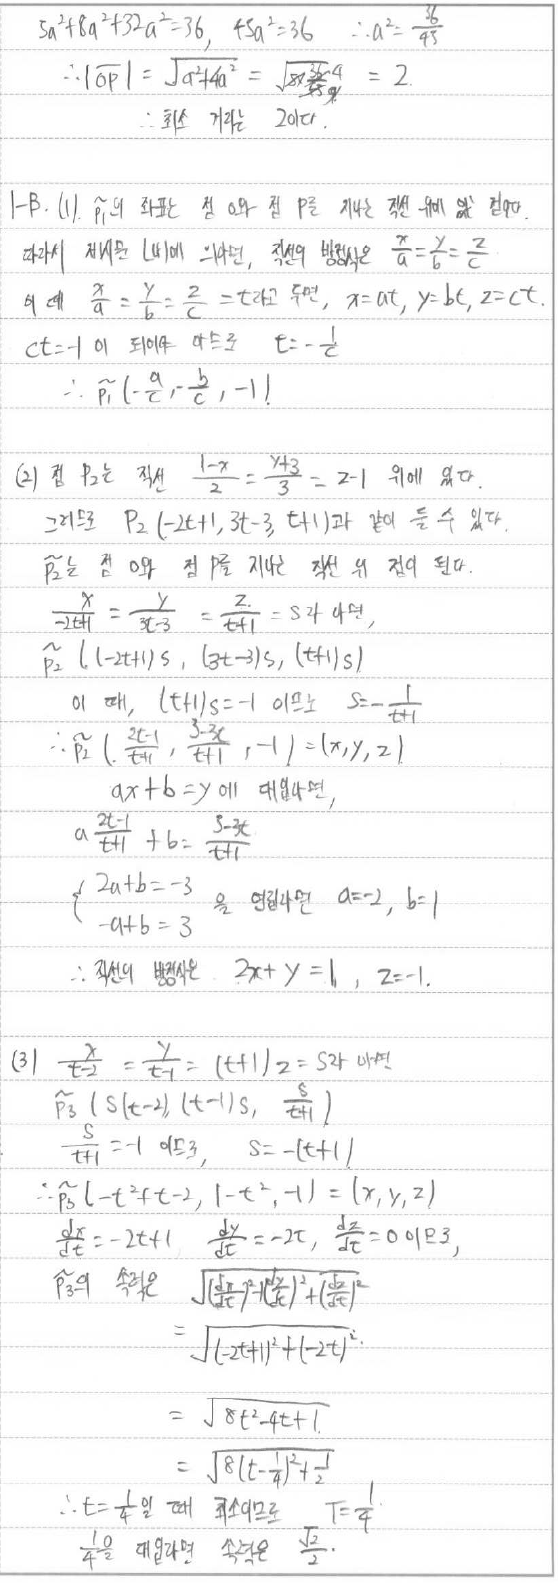 5a²+8a²+32a²=36, 45a²=36 ∴a²=36/45
∴|OP| = √(a²+4a²) = = 2.
∴ 최소 거리는 2이다.
1-B. (1). p̃₁의 좌표는 점 O와 점 P를 지나는 직선 위에 있는 점이다.
따라서 제시문 (나)에 의하면, 직선의 방정식은 x/a = y/b = z/c
이 때 x/a = y/b = z/c = t라고 두면, x=at, y=bt, z=ct.
ct=-1 이 되어야 하므로 t=-1/c
∴ p̃₁ (-a/c, -b/c, -1)
(2) 점 P₂는 직선 (1-x)/2 = (y+3)/3 = z-1 위에 있다.
그러므로 P₂ (-2t+1, 3t-3, t+1)과 같이 둘 수 있다.
p̃₂는 점 O와 점 P를 지나는 직선 위 점이 된다.
x/(-2t+1) = y/(3t-3) = z/(t+1) = s라 하면,
p̃₂ ((-2t+1)s, (3t-3)s, (t+1)s)
이 때, (t+1)s=-1 이므로 s=-1/(t+1)
∴ p̃₂ ((2t-1)/(t+1), (3-3t)/(t+1), -1) = (x, y, z)
ax+b=y에 대입하면,
a (2t-1)/(t+1) + b = (3-3t)/(t+1)
{ 2a+b=-3
-a+b=3 을 연립하면 a=-2, b=1
∴ 직선의 방정식은 2x+y=1, z=-1.
(3) x/(t-2) = y/(t-1) = (t+1)z = s라 하면
p̃₃ (s(t-2), (t-1)s, s/(t+1))
s/(t+1) = -1 이므로, s=-(t+1)
∴ p̃₃ (-t²+t-2, 1-t², -1) = (x, y, z)
dx/dt = -2t+1 dy/dt = -2t, dz/dt = 0 이므로,
p̃₃의 속력은 √((dx/dt)²+(dy/dt)²+(dz/dt)²)
= √((-2t+1)²+(-2t)²).
= √(8t²-4t+1)
= √(8(t-1/4)²+1/2)
∴ t=1/4일 때 최소이므로 T=1/4.
1/4을 대입하면 속력은 √2/2.